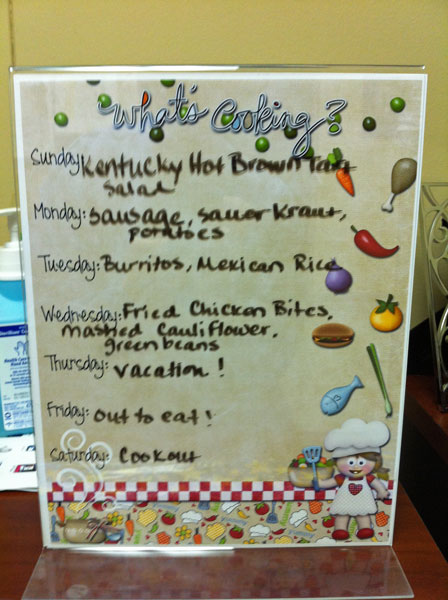 What's Cooking?
Sunday: Kentucky Hot Brown Tart
Salad
Monday: Sausage, Sauer Kraut,
potatoes
Tuesday: Burritos, Mexican Rice
Wednesday: Fried Chicken Bites,
mashed Cauliflower,
green beans
Thursday: vacation!
Friday: out to eat!
Saturday: Cookout